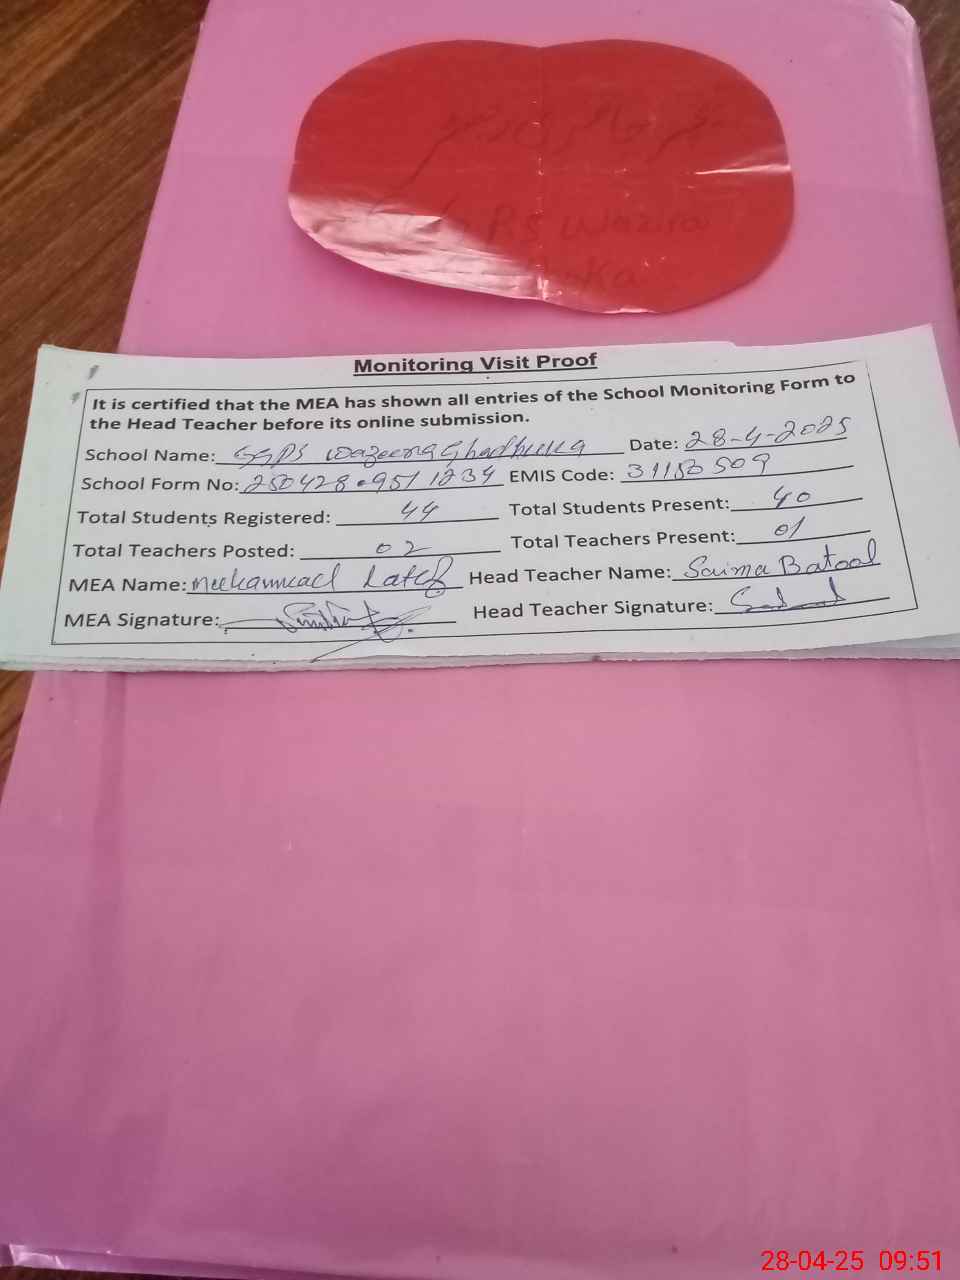 RS Wazira
Monitoring Visit Proof
It is certified that the MEA has shown all entries of the School Monitoring Form to
the Head Teacher before its online submission.
School Name: GGPS Date: 28-4-2025
School Form No: 250428 0951 1234 EMIS Code: 31150509
Total Students Registered: 44 Total Students Present: 40
Total Teachers Posted: 02 Total Teachers Present: 01
MEA Name: Muhammad Latef Head Teacher Name: Saima Batool
MEA Signature: Head Teacher Signature:
28-04-25 09:51